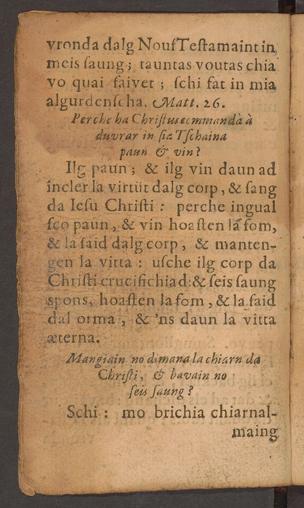 vronda dalg Nouf Teſtamaint in
meis ſaung; tauntas voutas chia
vo quai faivet; ſchi fat in mia
algurdenſcha. Matt. 26.
Perche ha Chriſtus cummandà à
duvrar in ſia Tſchaina
paun & vin?
Ilg paun; & ilg vin daun ad
incler la virtüt dalg corp, & ſang
da Ieſu Chriſti: perche ingual
ſco paun, & vin hoaſten la fom,
& la ſaid dalg corp, & manten-
gen la vitta: uſche ilg corp da
Chriſti crucifichiad: & ſeis ſaung
ſpons, hoaſten la fom, & la ſaid
dal orma, & 'ns daun la vitta
æterna.
Mangiain no dimana la chiarn da
Chriſti, & bavain no
ſeis ſaung?
Schi: mo brichia chiarnal-
maing